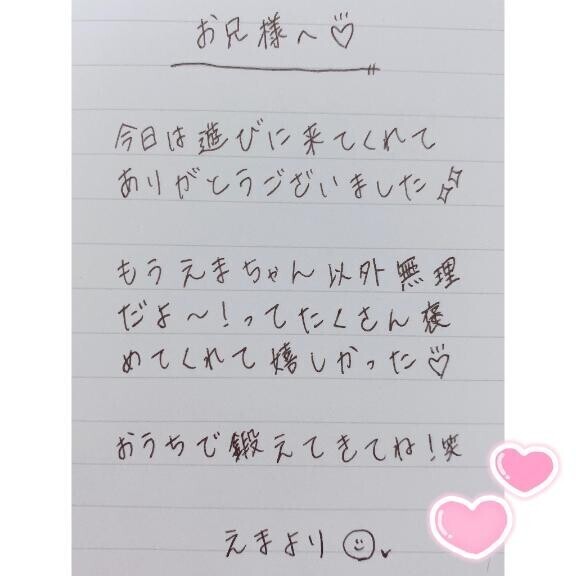 お兄様へ♡
今日は遊びに来てくれて
ありがとうございました
もうえまちゃん以外無理
だよ〜!ってたくさん褒
めてくれて嬉しかった♡
おうちで鍛えてきてね!笑
えまより